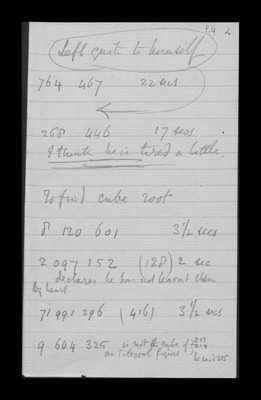 f.4 4
Left quit to himself
764 467 22 secs
268 446 17 secs.
I think he is tired a little.
To find cube root
8 120 601 3 1/2 secs
2 097 152 (128) 2 sec
declares he has not learnt them
by heart
71 991 296 (416) 3 1/2 secs
9 664 325 is not the cube of
an integral figure
he said 215